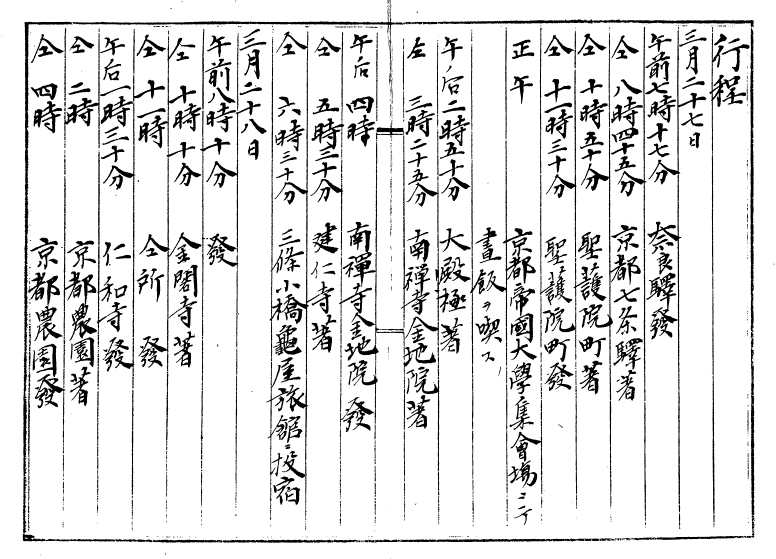 行程
三月二十七日
午前七時十七分 奈良驛發
仝 八時四十五分 京都七条驛着
仝 十時五十分 聖護院町着
仝 十一時三十分 聖護院町發
正午 京都帝國大學集會場ニテ
晝飯ヲ喫ス
午后二時五十分 大殿極着
仝 三時二十五分 南禅寺金地院着
午后 四時 南禅寺金地院發
仝 五時三十分 建仁寺着
仝 六時三十分 三條小橋龜屋旅館ニ投宿
三月二十八日
午前八時十分 發
仝 十時十分 金閣寺着
仝 十一時 仝所 發
午后一時三十分 仁和寺發
仝 二時 京都農園着
仝 四時 京都農園發